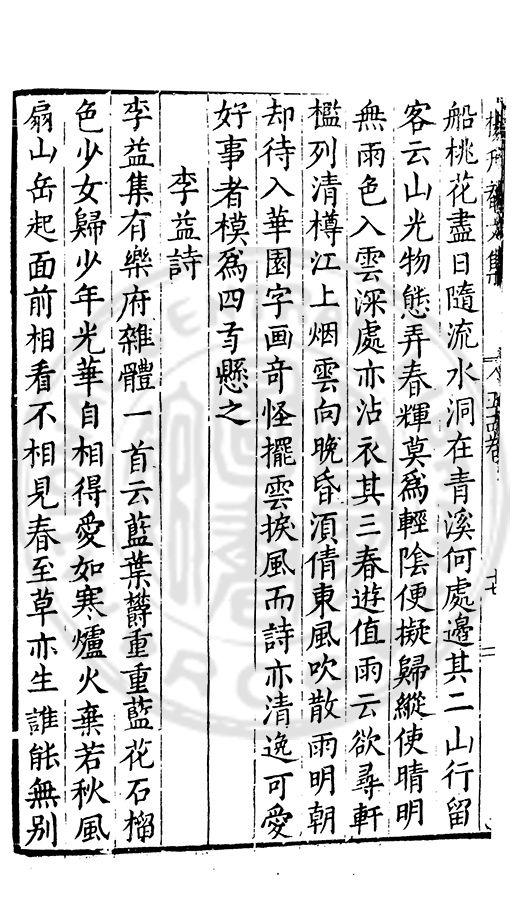 船桃花盡日隨流水洞在青溪何處邊其二山行留
客云山光物態弄春輝莫爲輕陰便擬歸縱使晴明
無雨色入雲深處亦沾衣其三春遊值雨云欲尋軒
檻列清樽江上烟雲向晚昏湏倩東風吹散雨明朝
却待入華園字画竒怪擺雲捩風而詩亦清逸可愛
好事者模爲四首懸之
李益詩
李益集有樂府雜體一首云藍葉欝重重藍花石榴
色少女歸少年光華自相得愛如寒爐火棄若秋風
扇山岳起面前相看不相見春至草亦生誰能無別